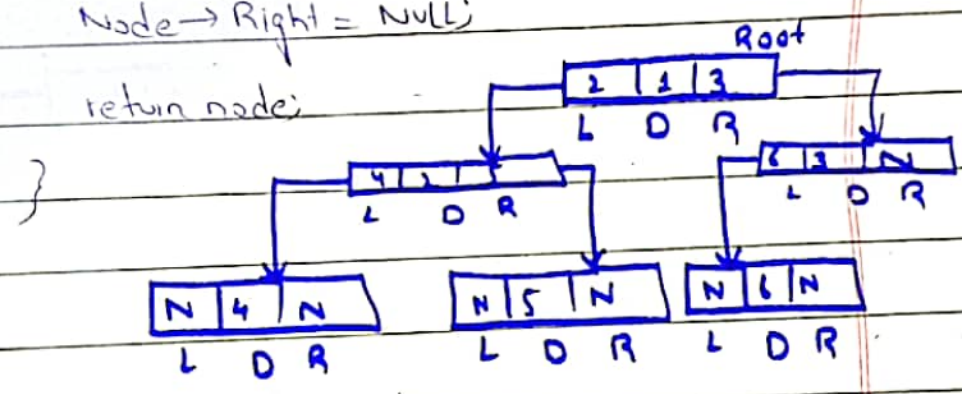 Node → Right = NULL;
Root
return node;
2 1 3
L D R
}
4 2
L D R
6 3 N
L D R
N 4 N
L D R
N 5 N
L D R
N 6 N
L D R